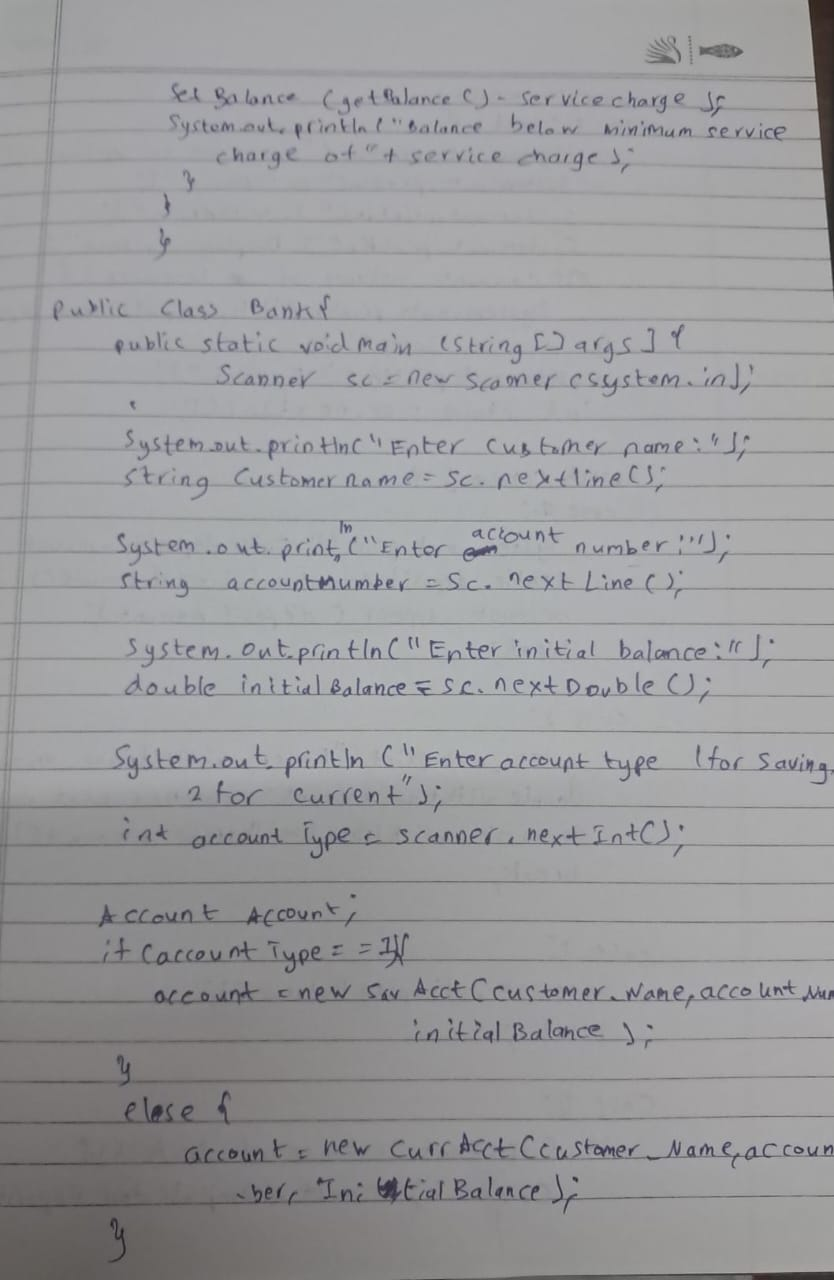 Set Balance (getBalance () - service charge );
System.out.println ("Balance below minimum service
charge of "+ service charge );
}
}
}
public Class Bank{
public static void main (String [] args] {
Scanner sc = new Scanner (system.in);
System.out.println(" Enter customer name:");
String Customer name = sc. nextline();
System.out.println("Enter account number:");
String accountnumber = Sc. next Line ();
System.out.println("Enter initial balance:");
double initial Balance = sc. next Double ();
System.out. println (" Enter account type 1for Saving
2 for current");
int account Type = scanner. next Int();
Account Account;
if (account Type = = 1){
account = new Sav Acct (customer. Name, account Num
initial Balance );
}
else {
account = new Curr Acct (customer_Name, accoun
ber, Initial Balance );
}